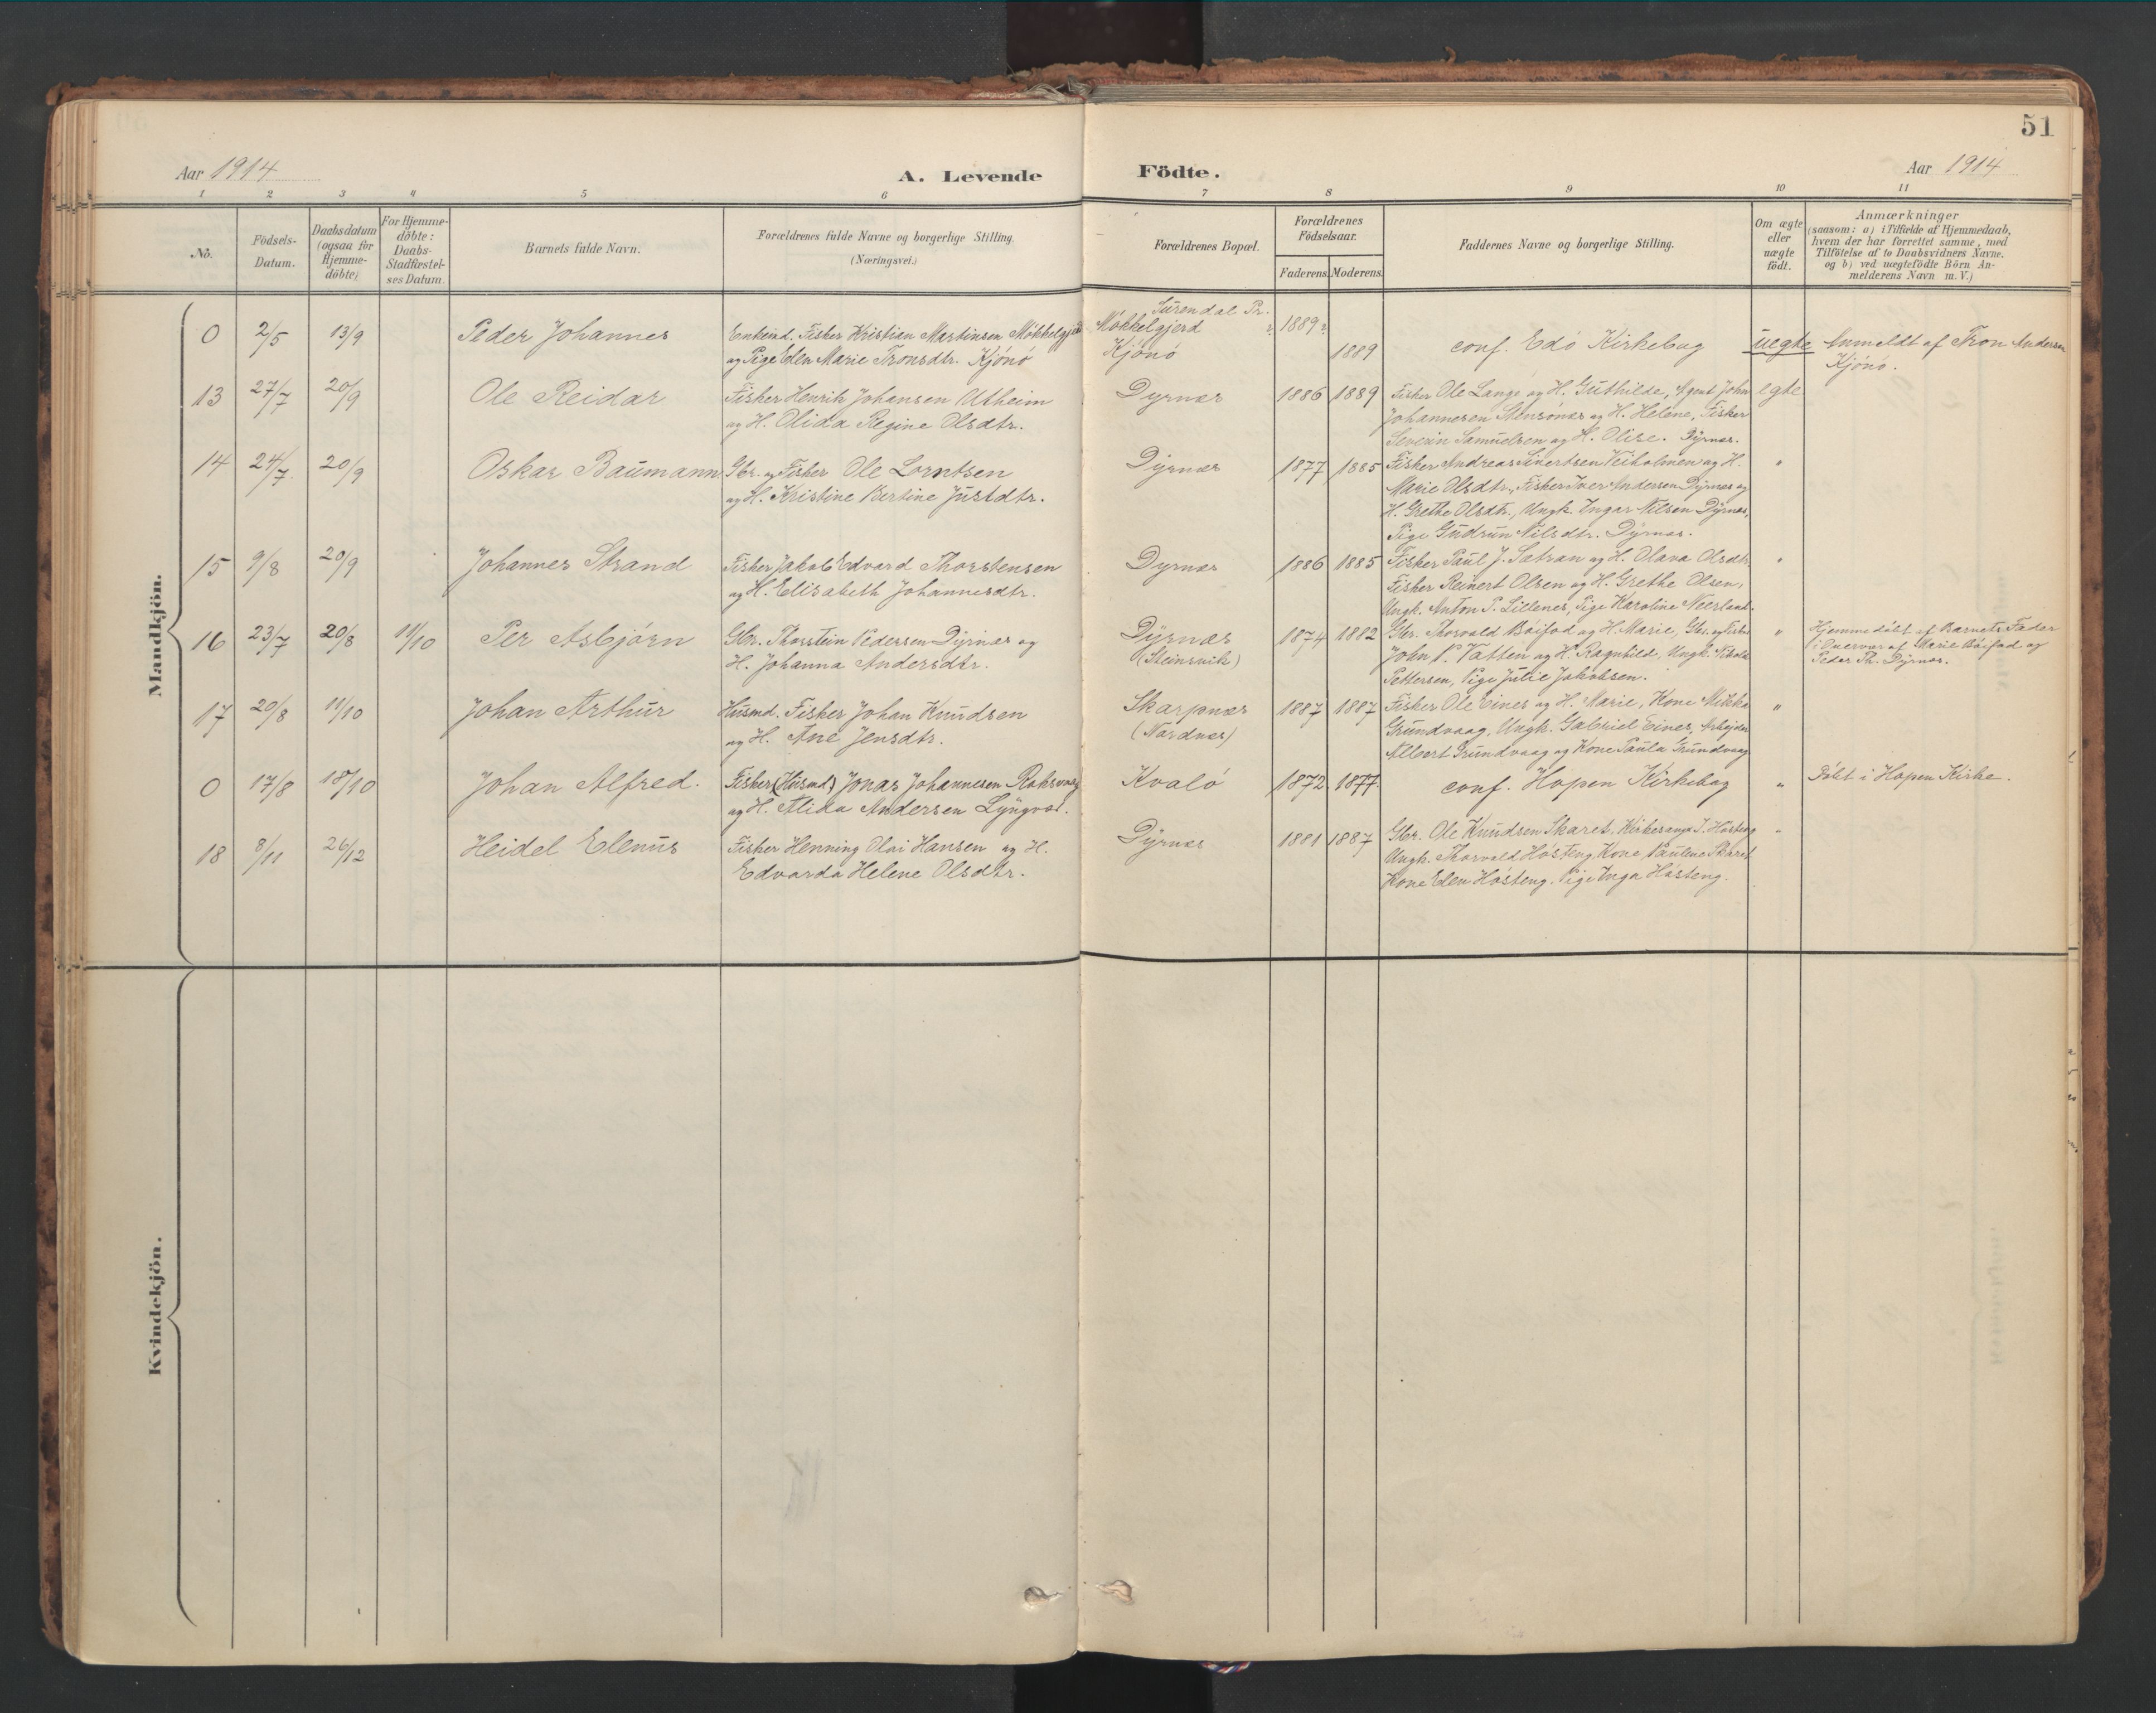 51
Aar 1914
A. Levende
Födte.
Aar 1914
1 2 3 4 5 6 7 8 9 10 11
No.
Födsels-
Datum.
Daabsdatum
(ogsaa for
Hjemme-
döbte)
For Hjemme-
döbte:
Daabs-
Stadfæstel-
ses Datum.
Barnets fulde Navn.
Forældrenes fulde Navne og borgerlige Stilling.
(Næringsvei.)
Forældrenes Bopæl.
Forældrenes
Födselsaar.
Faderens. Moderens.
Faddernes Navne og borgerlige Stilling.
Om ægte
eller
uægte
födt.
Anmærkninger
(saasom: a) i Tilfælde af Hjemmedaab,
hvem der har forrettet samme, med
Tilföielse af to Daabsvidners Navne.
og b) ved uægtefödte Börn An-
melderens Navn m. V.)
Mandkjön.
0 2/5 13/9 Peder Johannes
Enkemd. Fisker Kristian Martinsen Mökkelgjerd
og Pige Elen Marie Tronsdtr. Kjönö
Surendal Pr.
Mökkelgjerd
Kjönö
1889 1889
conf. Edö Kirkebog
uegte
Anmeldt af Tron Andersen
Kjönö.
13 27/7 20/9 Ole Reidar
Fisker Henrik Johansen Utheim
og H. Olida Regine Olsdtr.
Dyrnæs 1886 1889
Fisker Ole Lange og H. Guthilde, Agent John
Johannesen Stensönæs og H. Helene, Fisker
Severin Samuelsen og H. Olise. Dyrnæs.
egte
14 24/7 20/9 Oskar Baumann
Gbr. og Fisker Ole Lorntsen
og H. Kristine Bertine Justdtr.
Dyrnæs 1877 1885
Fisker Andreas Sivertsen Veiholmen og H.
Marie Olsdtr., Fisker Iver Andersen Dyrnæs og
H. Grethe Olsdtr., Ungk. Ingar Nilsen Dyrnæs,
Pige Gudrun Nilsdtr. Dyrnæs.
"
15 9/8 20/9 Johannes Strand
Fisker Jakob Edvard Thorstensen
og H. Elisabeth Johannesdtr.
Dyrnæs 1886 1885
Fisker Paul J. Sætran og H. Olava Olsdtr.
Fisker Reinert Olsen og H. Grethe Olsen,
Ungk. Anton P. Lillenes, Pige Karoline Neerland.
"
16 23/7 20/8 11/10 Per Asbjörn
Gbr. Thorstein Pedersen Dyrnæs og
H. Johanna Andersdtr.
Dyrnæs
(Steinsvik)
1874 1882
Gbr. Thorvald Böifod og H. Marie, Gbr. og Fisker
John P. Vatten og H. Ragnhild, Ungk.
Pettersen, Pige Julie Jakobsen.
"
Hjemmedöbt af Barnets Fader
i Overvær af Marie Böifod og
Peder Th. Dyrnæs.
17 20/8 11/10 Johan Arthur
Husmd. Fisker Johan Knudsen
og H. Ane Jensdtr.
Skarpnæs
(Nordnæs)
1887 1887
Fisker Ole Eines og H. Marie, Kone Mikka
Grundvaag, Ungk. Gabriel Eines, Arbejder
Albert Grundvaag og Kone Paula Grundvaag
"
0 17/8 18/10 Johan Alfred.
Fisker (Husmd) Jonas Johannesen Roksvaag
og H. Alida Andersen Lyngvær.
Kvalö 1872 1877.
conf. Hopen Kirkebog
"
Döbt i Hopen Kirke.
18 8/11 26/12 Heidel Elenus
Fisker Henning Olai Hansen og H.
Edvarda Helene Olsdtr.
Dyrnæs 1881 1887
Gbr. Ole Knudsen Skaret, Kirkesanger J. Hösteng
Ungk. Thorvald Hösteng, Kone Pauline Skaret
Kone Elen Hösteng. Pige Inga Hösteng.
"
Kvindekjön.